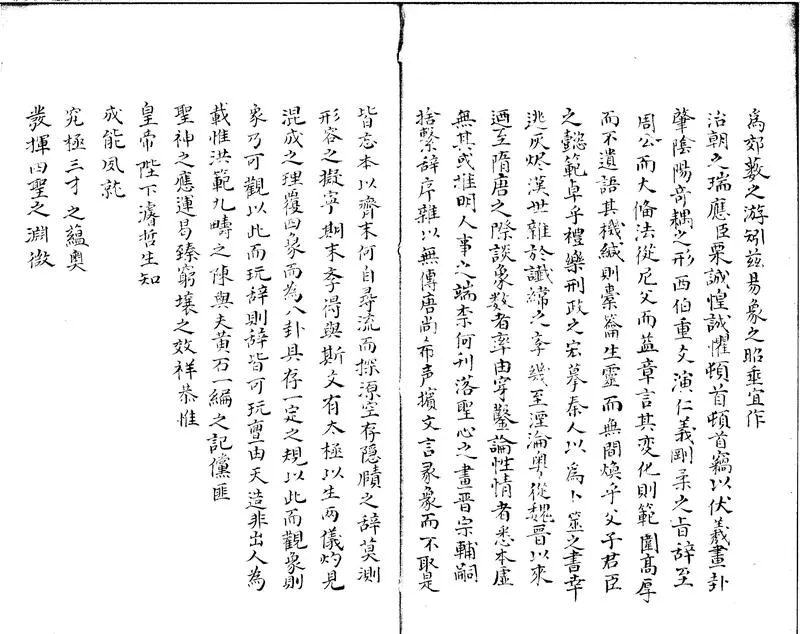 為郊藪之游矧茲易象之昭垂宜作
治朝之瑞應臣栗誠惶誠懼頓首頓首竊以伏羲畫卦
肇陰陽奇耦之形西伯重爻演仁義剛柔之旨辞至
周公而大備法從尼父而益章言其変化則範圍高厚
而不遺語其機緘則橐籥生靈而無間煥乎父子君臣
之懿範卓乎禮樂刑政之宏摹秦人以為卜筮之書幸
逃灰烬漢世雜於讖緯之学幾至湮淪粤從魏晉以来
迺至隋唐之際談象数者率由穿鑿論性情者悉本虚
無其或推明人事之端柰何利落聖心之畫晉宗輔嗣
捨繫辞序雜以無傳唐尚希声擯文言彖象而不取是
皆忘本以齊末何自尋流而探源空存隠賾之辞莫測
形容之擬寧期末季得與斯文有太極以生两儀灼見
混成之理覆四象而為八卦具存一定之規以此而觀象則
象乃可觀以此而玩辞則辞皆可玩亶由天造非出人為
載惟洪範九疇之陳與夫黄石一編之記儻匪
聖神之應運曷臻窮壤之效祥恭惟
皇帝陛下濬哲生知
成能夙就
究極三才之蘊奥
發揮四聖之淵微